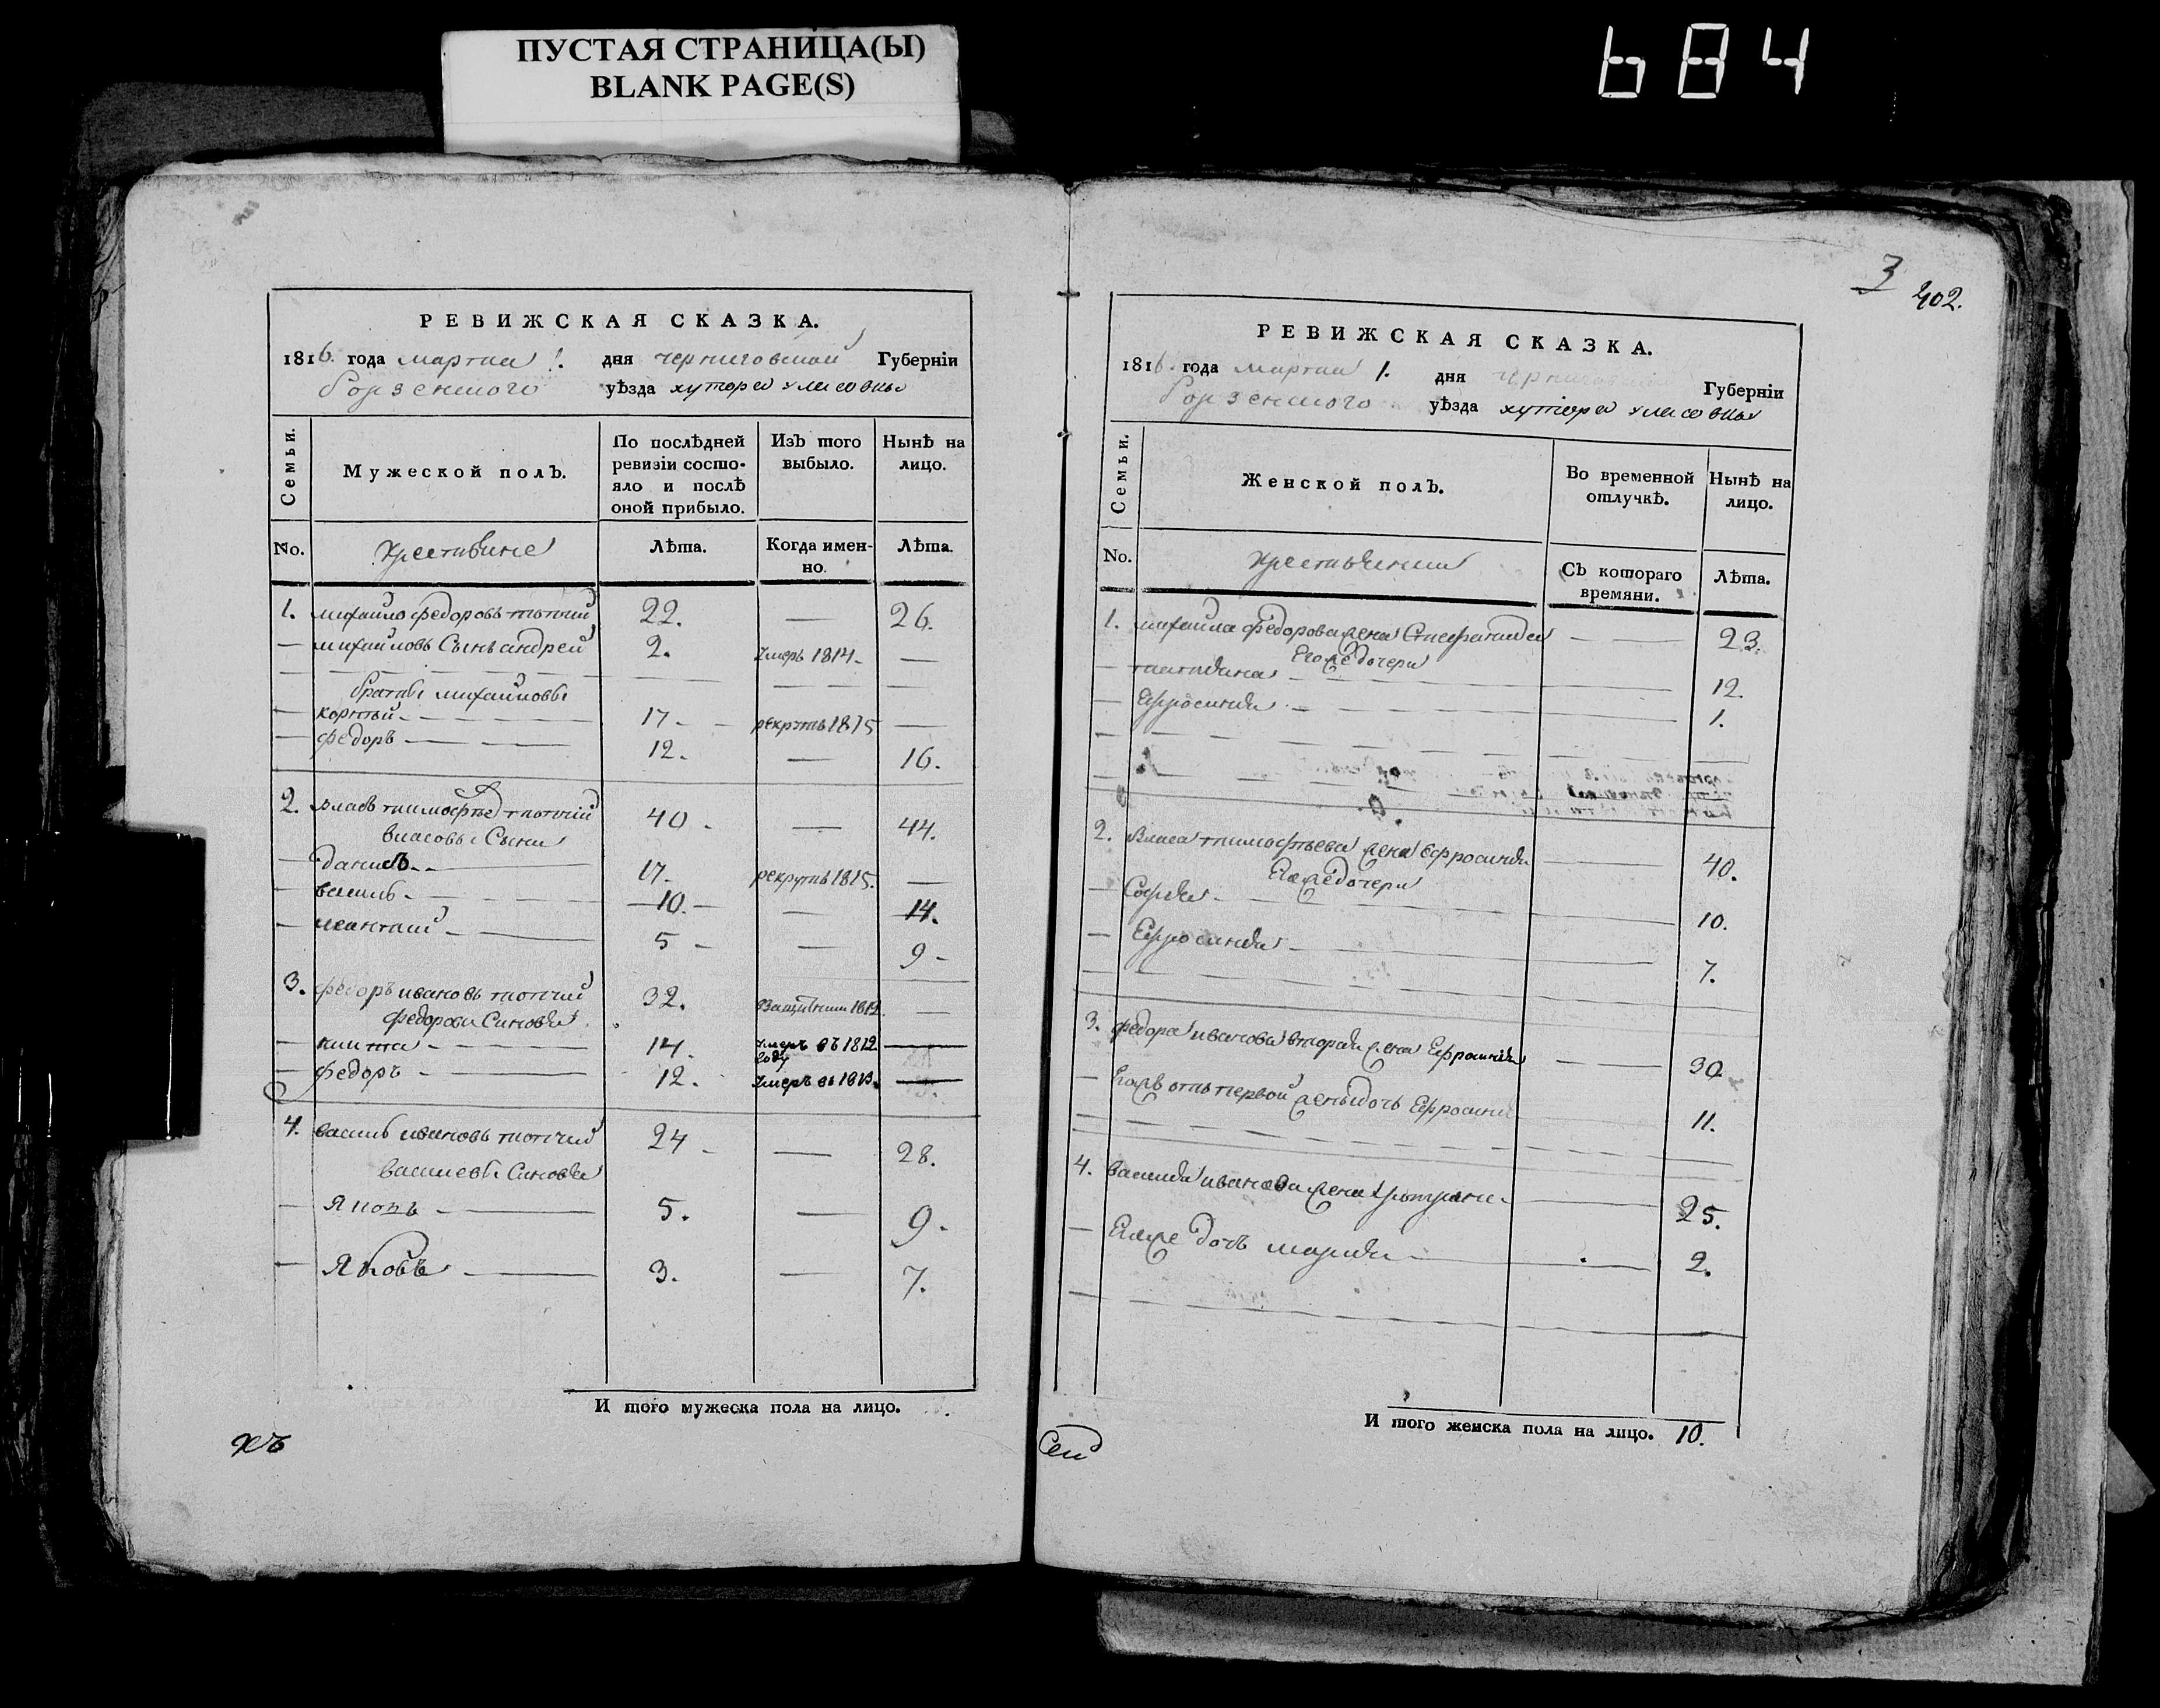 ПУСТАЯ СТРАНИЦА(Ы)
BLANK PAGE(S)
684
РЕВИЖСКАЯ СКАЗКА.
1816. года марта 1. дня черниговской Губернїи
борзенского уѣзда хутора
Семьи.
Мужеской полъ.
По послѣдней ревизїи состояло и послѣ оной прибыло.
Изъ того выбыло.
Нынѣ на лицо.
No.
Лѣта.
Когда именно.
Лѣта.
1. михайло федоровъ 22. — 26.
— михайловъ Сынъ андрей 2. умеръ 1814 —
братья михайловы
— корнѣй 17 рекрутъ 1815 —
— федоръ 12. — 16.
2. власъ тимофѣев 40 — 44.
власовы Сыни
— данило 17. рекрутъ 1815. —
— василь 10. — 14.
— 5 — 9
3. федоръ ивановъ 32. 1812. —
федорови Синовья
— 14. умеръ въ 1812 году —
— федоръ 12. умеръ въ 1813. —
4. василь ивановъ 24 — 28.
василевы Синовья
— 5. — 9.
— Яковъ 3. — 7.
И того мужеска пола на лицо.
3
402.
РЕВИЖСКАЯ СКАЗКА.
1816. года марта 1. дня черниговской Губернїи
борзенского уѣзда хутора
Семьи.
Женской полъ.
Во временной отлучкѣ.
Нынѣ на лицо.
No.
Съ котораго времяни.
Лѣта.
1. михайла федорова жена Стефанида — 23.
Его же дочери
— татияна 12.
— Ефросиния 1.
2. Власа тимофѣева жена Ефросиния 40.
Его же дочери
— София 10.
— Ефросиния 7.
3. федора иванова вторая жена Ефросиния — 30
— отъ первой жены дочь Ефросиния 11.
4. василия иванова жена 25.
— Его же дочь мария 2.
И того женска пола на лицо. 10.